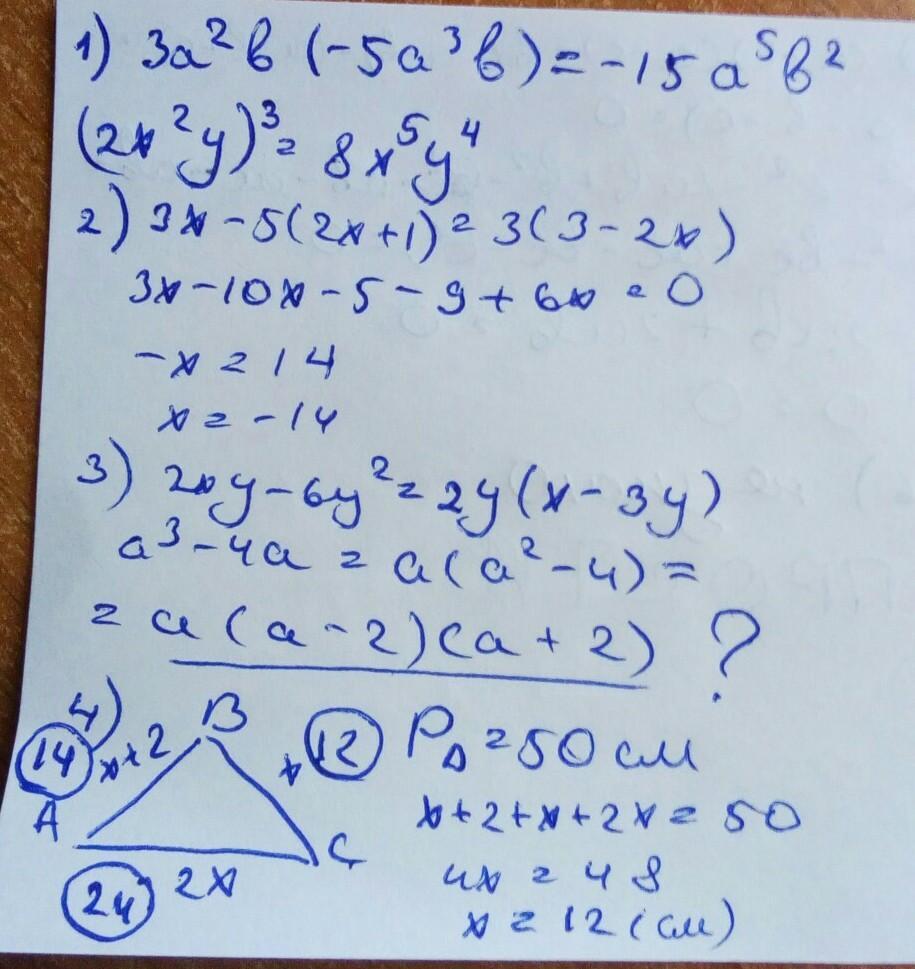 1) 3a²b (-5a³b) = -15a⁵b²
(2x²y)³ = 8x⁵y⁴
2) 3x - 5(2x+1) = 3(3-2x)
3x - 10x - 5 - 9 + 6x = 0
-x = 14
x = -14
3) 2xy - 6y² = 2y(x - 3y)
a³ - 4a = a(a² - 4) =
= a(a - 2)(a + 2) ?
4) B
14 x+2 x 12 P△ = 50 см
A C x+2+x+2x = 50
24 2x 4x = 48
x = 12 (см)